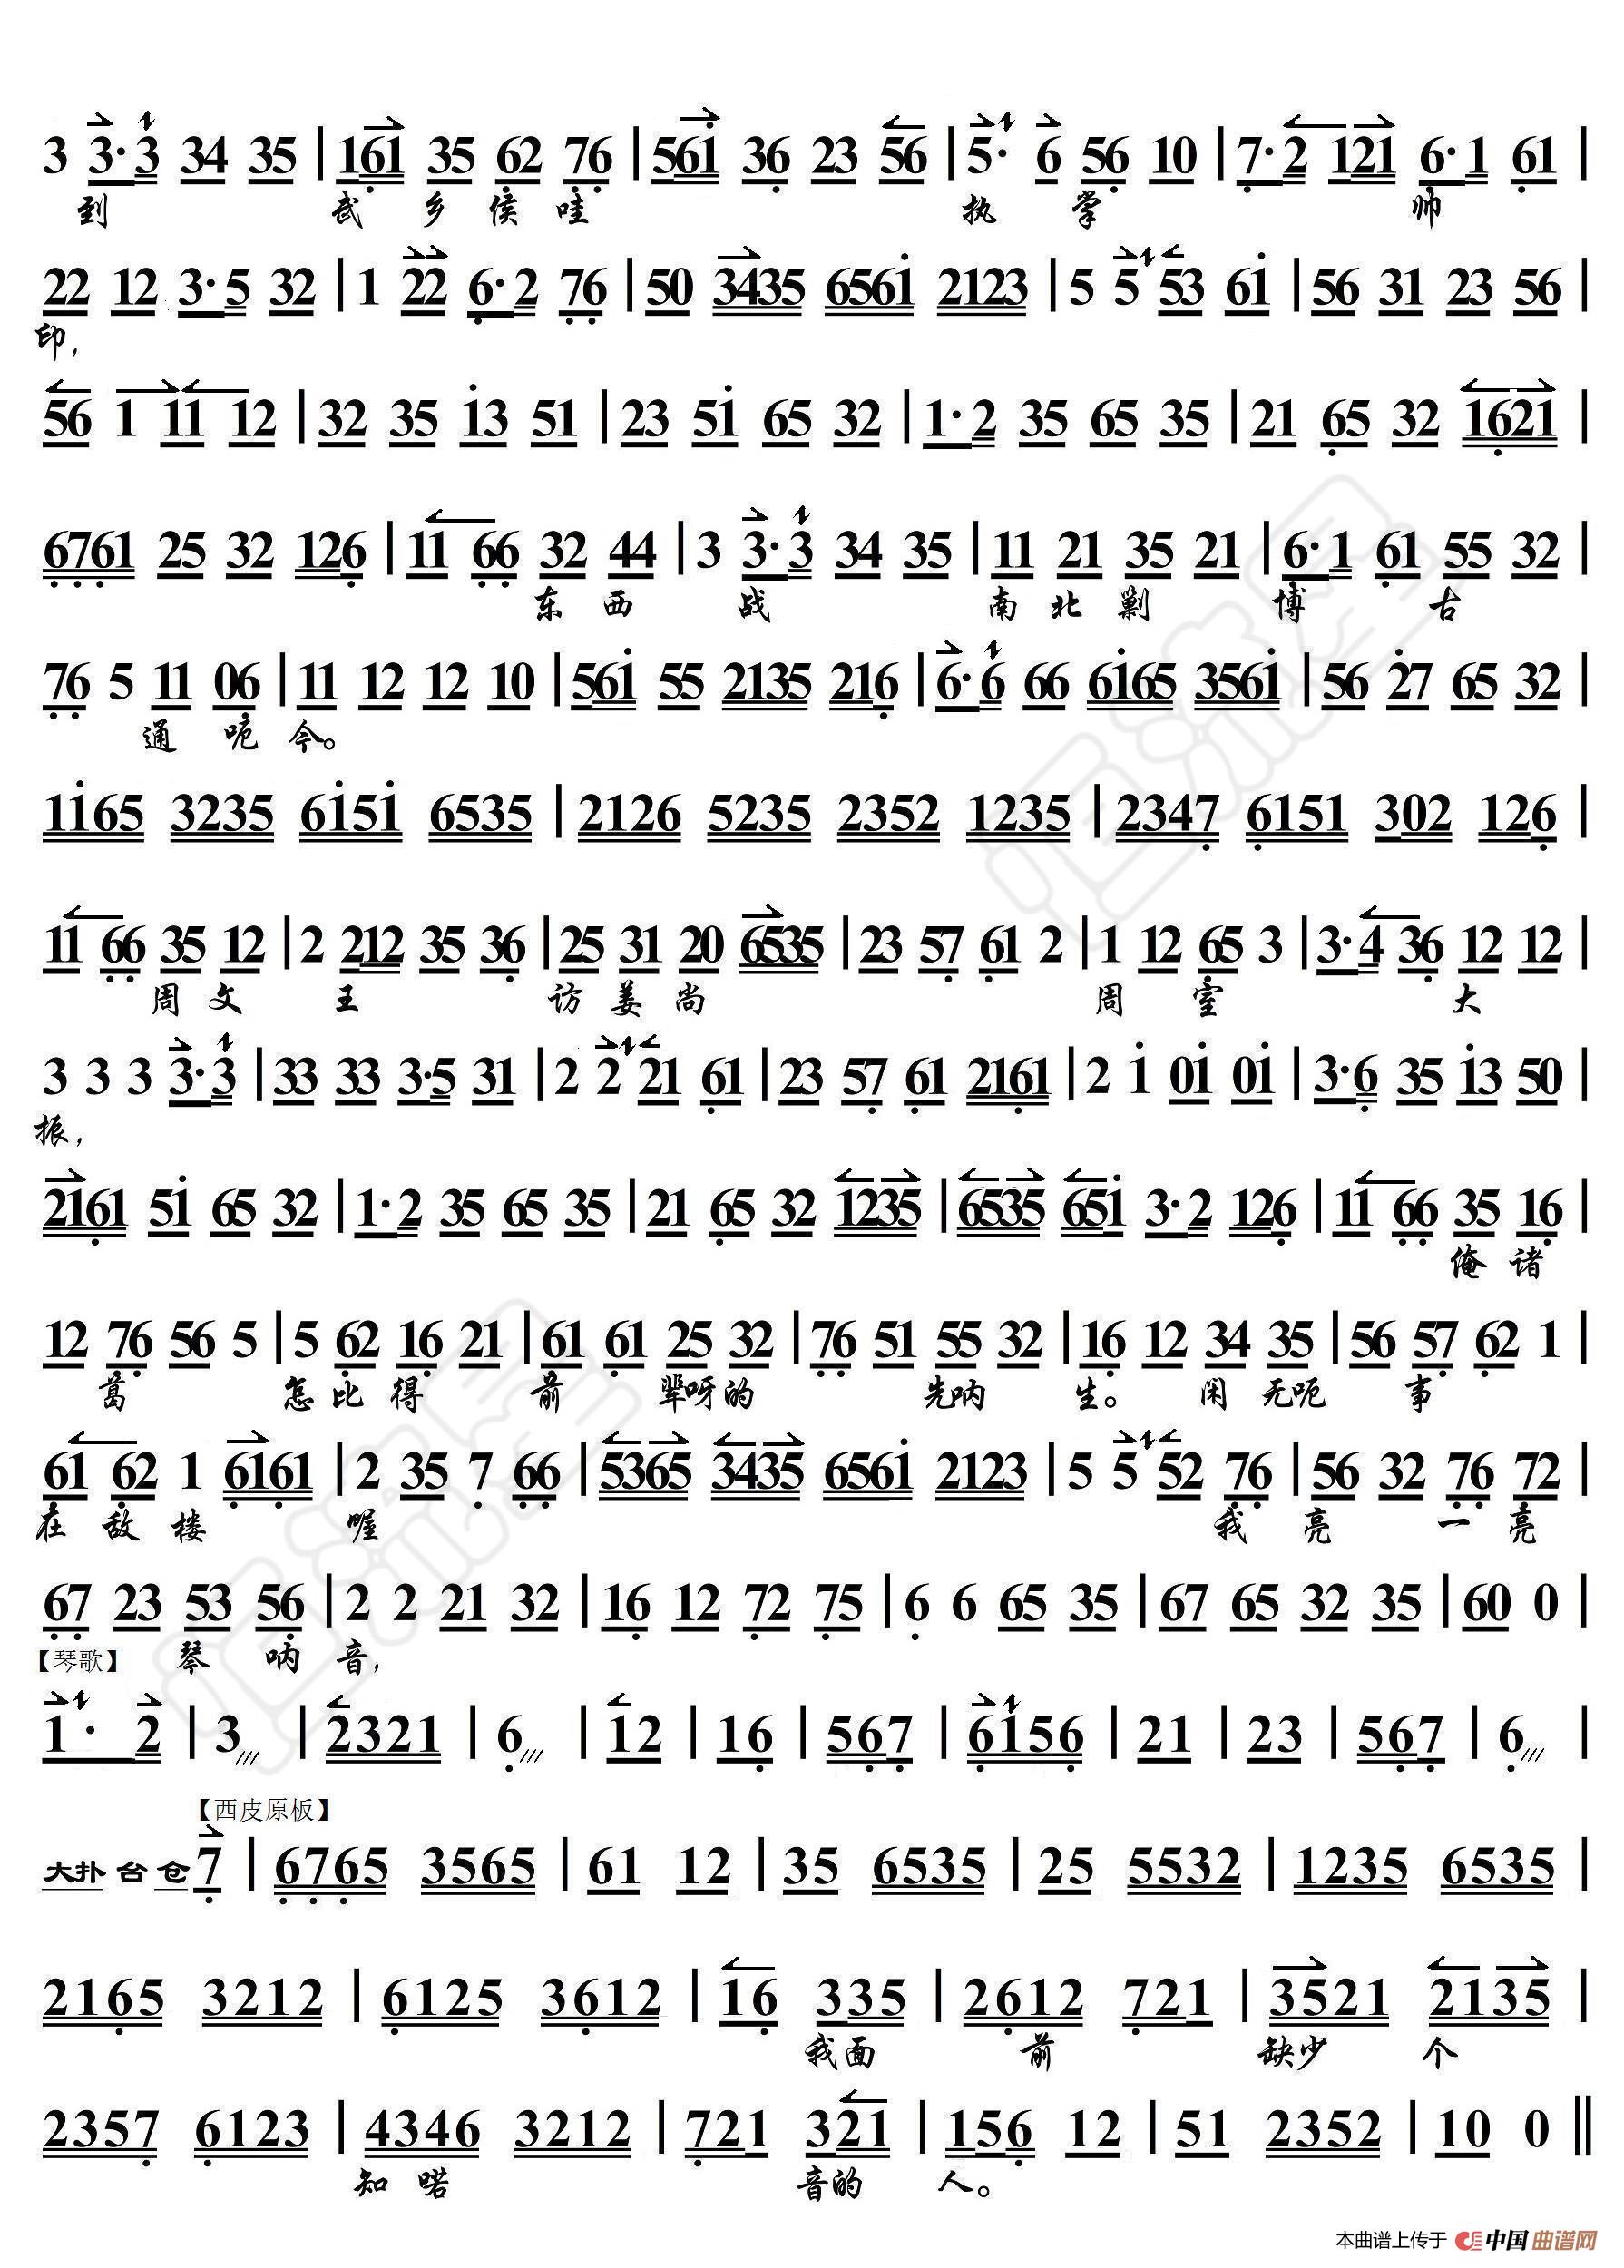 3 3·3 34 35 | 161 35 62 76 | 561 36 23 56 | 5· 6 56 10 | 7·2 121 6·1 61 |
到 武 乡 侯 哇 执 掌 帅
22 12 3·5 32 | 1 22 6·2 76 | 50 3435 6561 2123 | 5 5 53 61 | 56 31 23 56 |
印,
56 1 11 12 | 32 35 13 51 | 23 51 65 32 | 1·2 35 65 35 | 21 65 32 1621 |
6761 25 32 126 | 11 66 32 44 | 3 3·3 34 35 | 11 21 35 21 | 6·1 61 55 32
东 西 战 南 北 剿 博 古
76 5 11 06 | 11 12 12 10 | 561 55 2135 216 | 6·6 66 6165 3561 | 56 27 65 32 |
通 呃 今。
1165 3235 6151 6535 | 2126 5235 2352 1235 | 2347 6151 302 126 |
11 66 35 12 | 2 212 35 36 | 25 31 20 6535 | 23 57 61 2 | 1 12 65 3 | 3·4 36 12 12 |
周 文 王 访 姜 尚 周 室 大
3 3 3 3·3 | 33 33 3·5 31 | 2 2 21 61 | 23 57 61 2161 | 2 1 01 01 | 3·6 35 13 50 |
振,
2161 51 65 32 | 1·2 35 65 35 | 21 65 32 1235 | 6535 651 3·2 126 | 11 66 35 16 |
俺 诸
12 76 56 5 | 5 62 16 21 | 61 61 25 32 | 76 51 55 32 | 16 12 34 35 | 56 57 62 1 |
葛 怎 比 得 前 辈呀的 先呐 生。 闲 无呃 事
61 62 1 6161 | 2 35 7 66 | 5365 3435 6561 2123 | 5 5 52 76 | 56 32 76 72 |
在 敌 楼 喔 我 亮 一 亮
67 23 53 56 | 2 2 21 32 | 16 12 72 75 | 6 6 65 35 | 67 65 32 35 | 60 0 |
【琴歌】 琴 呐 音,
1· 2 | 3 | 2321 | 6 | 12 | 16 | 567 | 6156 | 21 | 23 | 567 | 6 |
【西皮原板】
大扑 台 仓 7 | 6765 3565 | 61 12 | 35 6535 | 25 5532 | 1235 6535 |
2165 3212 | 6125 3612 | 16 335 | 2612 721 | 3521 2135 |
我面 前 缺少 个
2357 6123 | 4346 3212 | 721 321 | 156 12 | 51 2352 | 10 0 ||
知 喏 音的 人。
本曲谱上传于 中国曲谱网